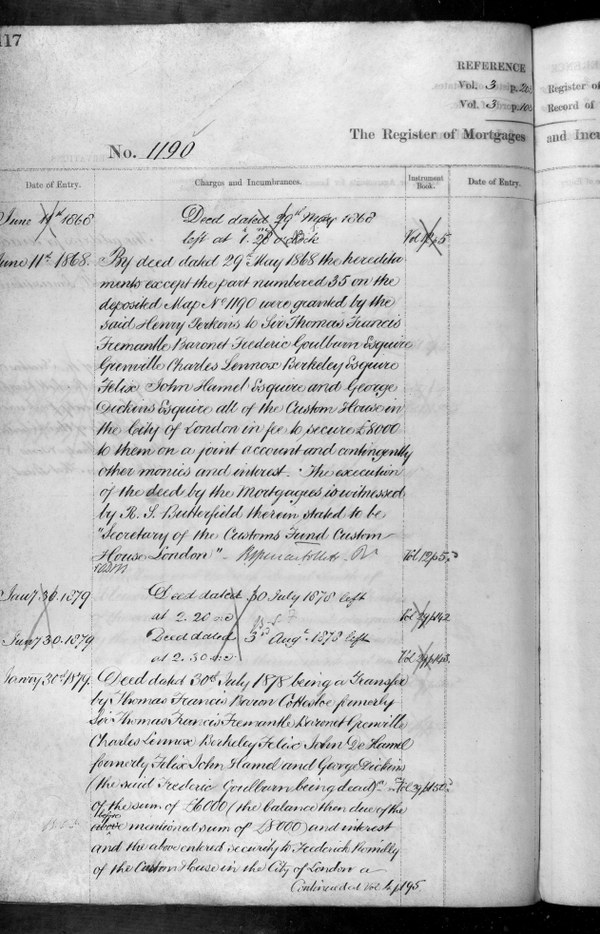 117
REFERENCE
Vol. 3 p.
Vol. 3 p.
Register of
Record of
The Register of Mortgages
and Incu
No. 1190
Date of Entry.
Charges and Incumbrances.
Instrument Book.
Date of Entry.
June 11th 1868
Deed dated 29th May 1868
left at 1. o'clock
Vol 12 p5
June 11th 1868.
By deed dated 29th May 1868 the heredita
ments except the part numbered 35 on the
deposited Map No 1190 were granted by the
said Henry Perkins to Sir Thomas Francis
Fremantle Baronet Frederic Goulburn Esquire
Grenville Charles Lennox Berkeley Esquire
Felix John Hamel Esquire and George
Dickins Esquire all of the Custom House in
the City of London in fee to secure £8000
to them on a joint account and contingently
other monies and interest. The execution
of the deed by the Mortgagees is witnessed
by R. S. Butterfield therein stated to be
"Secretary of the Customs Fund Custom
House London"
Vol 12 p5
Jany 30. 1879
Deed dated 30 July 1878 left
at 2.20
Vol p142
Jany 30. 1879
Deed dated 3rd Augt. 1878 left
at 2.30
Vol p143
Janry 30th 1879.
Deed dated 30th July 1878 being a Transfer
by Thomas Francis Baron Cottesloe formerly
Sir Thomas Francis Fremantle Baronet Grenville
Charles Lennox Berkeley Felix John De Hamel
formerly Felix John Hamel and George Dickins
(the said Frederic Goulburn being dead)
of the sum of £6000 (the balance then due of the
above mentioned sum of £8000) and interest
and the above entered security to Frederick Romilly
of the Custom House in the City of London a
Continued at Vol p195.